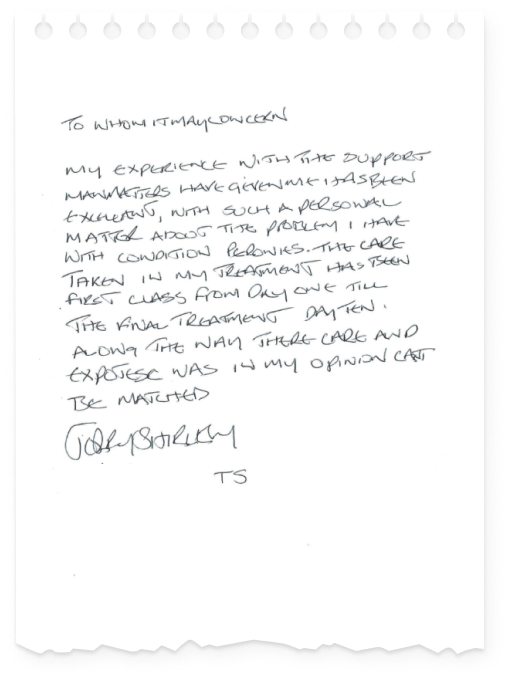 TO WHOM IT MAY CONCERN
MY EXPERIENCE WITH THE SUPPORT
MANMATTERS HAVE GIVEN ME HAS BEEN
EXCELLENT, WITH SUCH A PERSONAL
MATTER ABOUT THE PROBLEM I HAVE
WITH CONDITION PERONIES. THE CARE
TAKEN IN MY TREATMENT HAS BEEN
FIRST CLASS FROM DAY ONE TILL
THE FINAL TREATMENT DAY TEN.
ALONG THE WAY THERE CARE AND
WAS IN MY OPINION CAN'T
BE MATCHED
TS